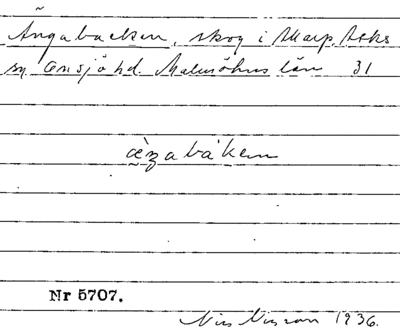 Ängabacken, skog i Skarp. Asks
sn Onsjö hd. Malmöhus län 31
æ̀ŋabáken
Nr 5707.
Nils Nilsson 1936.